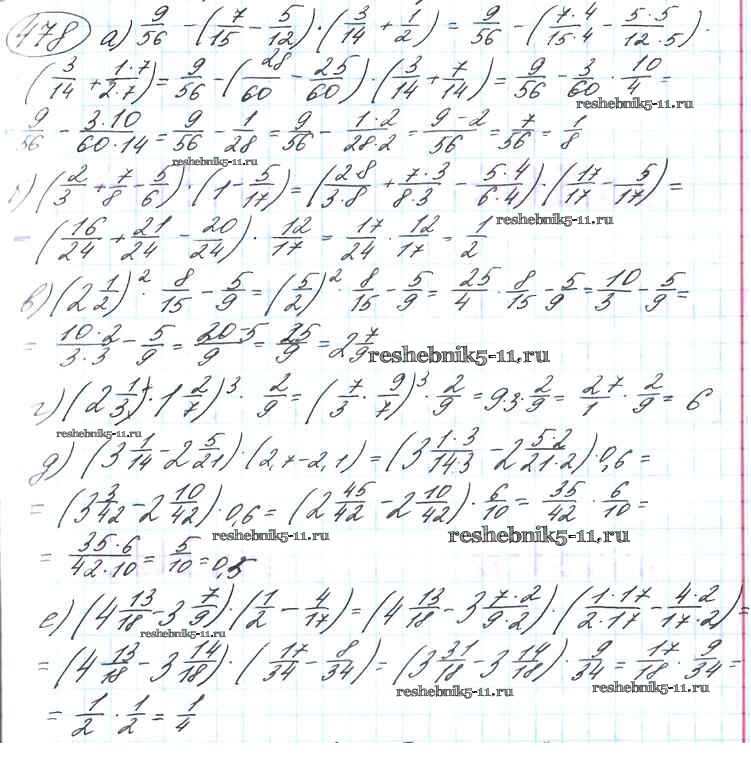 478 а) 9/56 - (7/15 - 5/12) · (3/14 + 1/2) = 9/56 - (7·4/15·4 - 5·5/12·5) ·
(3/14 + 1·7/2·7) = 9/56 - (28/60 - 25/60) · (3/14 + 7/14) = 9/56 - 3/60 · 10/4 =
reshebnik5-11.ru
9/56 - 3·10/60·14 = 9/56 - 1/28 = 9/56 - 1·2/28·2 = 9-2/56 = 7/56 = 1/8
reshebnik5-11.ru
) (2/3 + 7/8 - 5/6) · (1 - 5/17) = (2·8/3·8 + 7·3/8·3 - 5·4/6·4) · (17/17 - 5/17) =
reshebnik5-11.ru
= (16/24 + 21/24 - 20/24) · 12/17 = 17/24 · 12/17 = 1/2
в) (2 1/2)² · 8/15 - 5/9 = (5/2)² · 8/15 - 5/9 = 25/4 · 8/15 - 5/9 = 10/3 - 5/9 =
= 10·2/3·3 - 5/9 = 20-5/9 = 25/9 = 2 7/9
reshebnik5-11.ru
г) (2 1/3 · 1 2/7)³ · 2/9 = (7/3 · 9/7)³ · 2/9 = 9·3 · 2/9 = 27/1 · 2/9 = 6
reshebnik5-11.ru
д) (3 1/14 - 2 5/21) · (2,7 - 2,1) = (3 1·3/14·3 - 2 5·2/21·2) · 0,6 =
= (3 3/42 - 2 10/42) · 0,6 = (2 45/42 - 2 10/42) · 6/10 = 35/42 · 6/10 =
reshebnik5-11.ru
reshebnik5-11.ru
= 35·6/42·10 = 5/10 = 0,5
е) (4 13/18 - 3 7/9) · (1/2 - 4/17) = (4 13/18 - 3 7·2/9·2) · (1·17/2·17 - 4·2/17·2) =
reshebnik5-11.ru
= (4 13/18 - 3 14/18) · (17/34 - 8/34) = (3 31/18 - 3 14/18) · 9/34 = 17/18 · 9/34 =
reshebnik5-11.ru
reshebnik5-11.ru
= 1/2 · 1/2 = 1/4